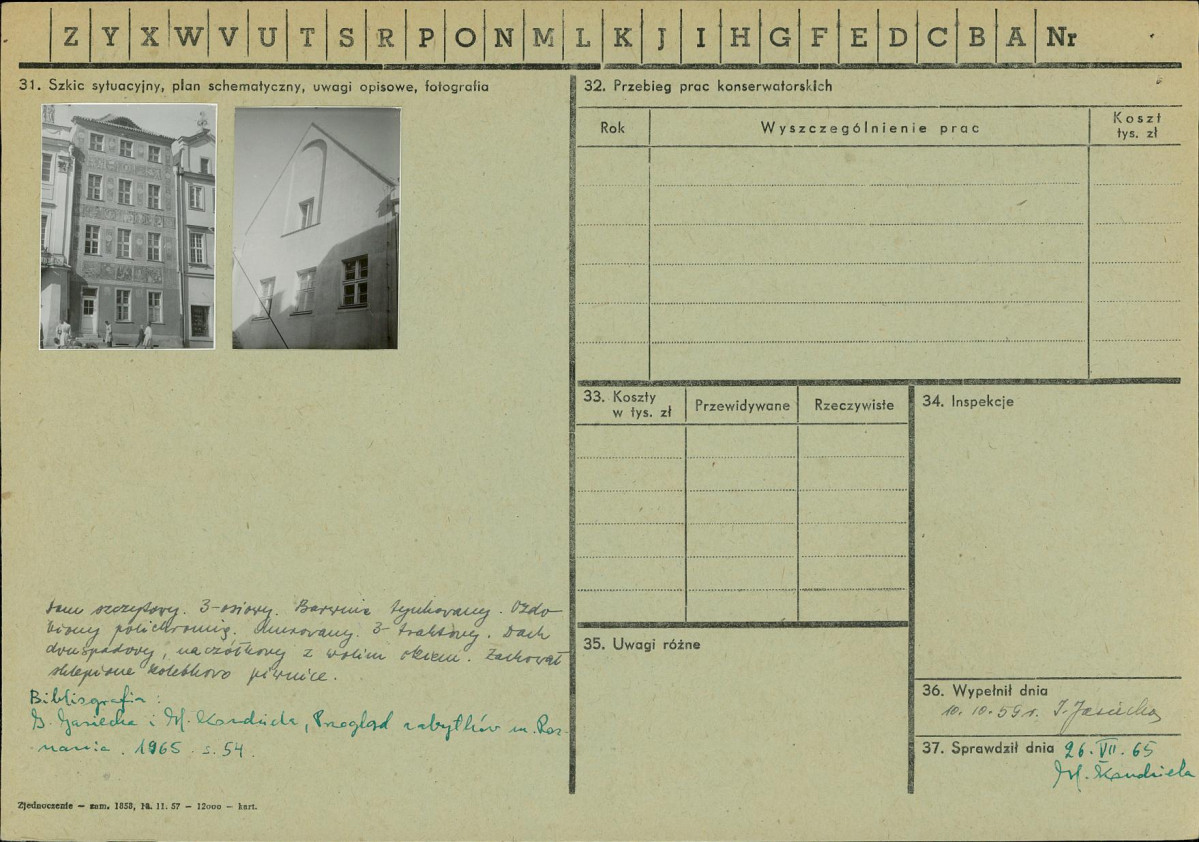 Z Y X W V U T S R P O N M L K J I H G F E D C B A Nr
31. Szkic sytuacyjny, plan schematyczny, uwagi opisowe, fotografia
Dom szczytowy. 3-osiowy. Barwnie tynkowany. Ozdo-
biony polichromią. Murowany. 3-traktowy. Dach
dwuspadowy, naczółkowy z wolim okiem. Zachował
sklepione kolebkowo piwnice.
Bibliografia:
i M. Kondziela, Przegląd zabytków m. Poz-
nania. 1965 s. 54.
Zjednoczenie — zam. 1858, 11. 57 — 12000 — kart.
32. Przebieg prac konserwatorskich
Rok
Wyszczególnienie prac
Koszt
tys. zł
33. Koszty
w tys. zł
Przewidywane
Rzeczywiste
34. Inspekcje
35. Uwagi różne
36. Wypełnił dnia
10.10.59 r. I. Jasiecka
37. Sprawdził dnia 26. VII. 65
M. Kondziela